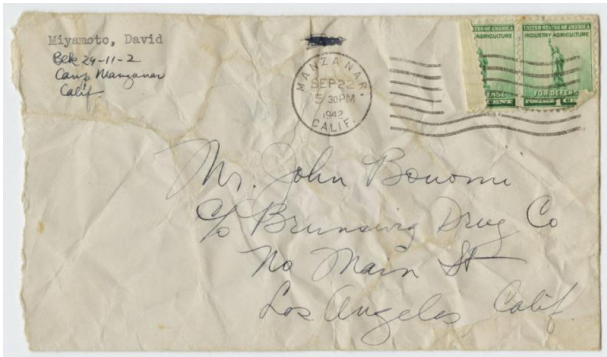 Miyamoto, David
Blk 29-11-2
Camp Manzanar
Calif.
MANZANAR,
SEP 22
5 30 PM
1942
CALIF.
UNITED STATES OF AMERICA
INDUSTRY AGRICULTURE
FOR DEFENSE
POSTAGE 1 CENT
Mr. John Bonomi
c/o Brunswig Drug Co
No Main St
Los Angeles Calif.